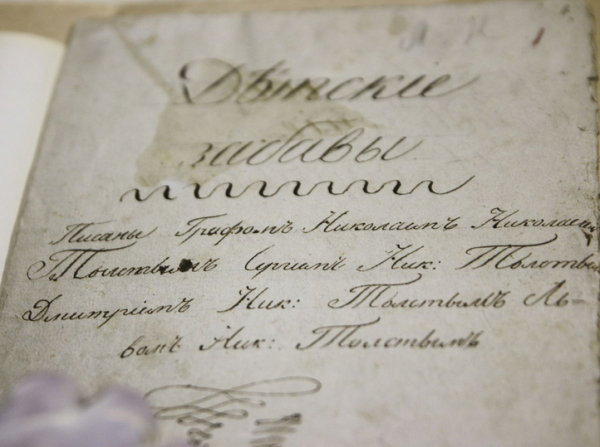 Дѣтскіе
забавы
Писаны Графомъ Николаимъ Николаи
Толстымъ Сергиемъ Ник: Толсты
Дмитріемъ Ник: Толстымъ Ль-
вомъ Ник: Толстымъ